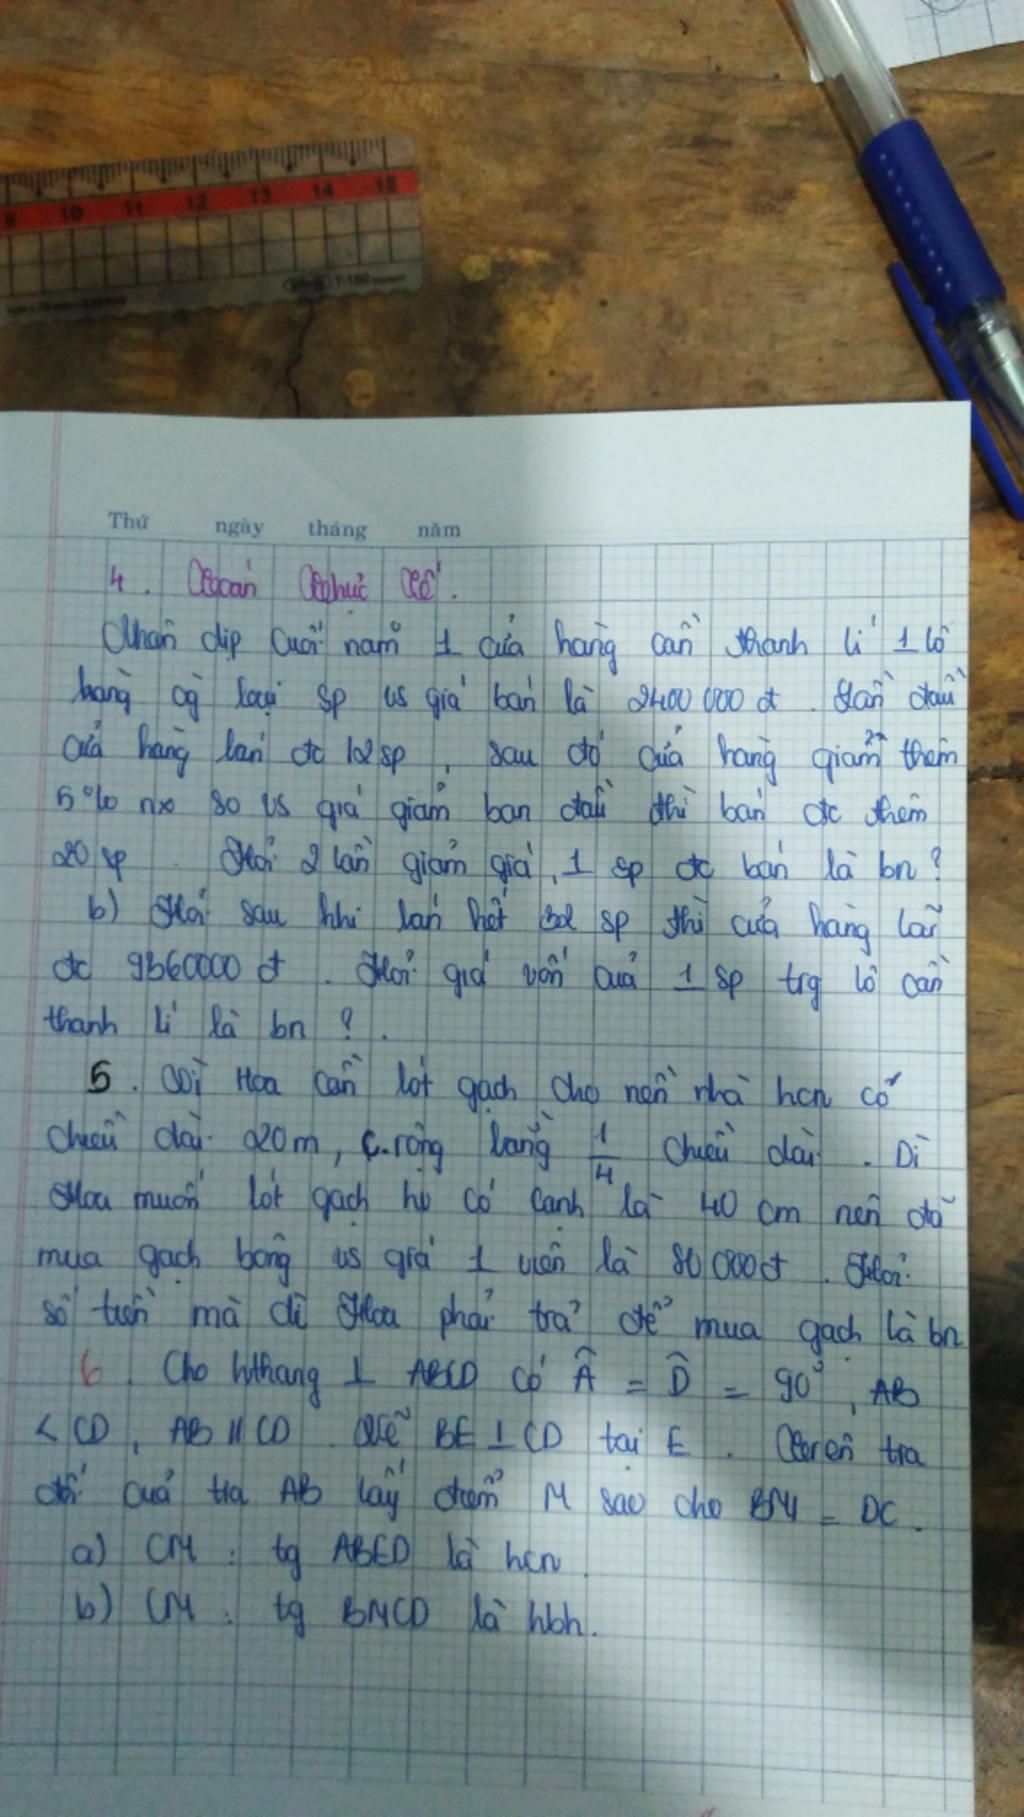 9 10 11 12 13 14 15
T-160
Thứ ngày tháng năm
4. Toán thực tế.
Nhân dịp cuối năm 1 cửa hàng cần thanh lí 1 lô
hàng cg loại sp vs giá bán là 2400 000 đ. Lần đầu
cửa hàng bán đc 12 sp, sau đó cửa hàng giảm thêm
5% nx so vs giá giảm ban đầu thì bán đc thêm
20 sp. Hỏi 2 lần giảm giá, 1 sp đc bán là bn?
b) Hỏi sau khi bán hết 32 sp thì cửa hàng lãi
đc 9360000 đ. Hỏi giá vốn của 1 sp trg lô cần
thanh lí là bn?.
5. Dì Hoa cần lót gạch cho nền nhà hcn có
chiều dài 20m, c.rộng bằng 1/4 chiều dài. Dì
Hoa muốn lót gạch hv có cạnh là 40 cm nên đã
mua gạch bông vs giá 1 viên là 80 000đ. Hỏi
số tiền mà dì Hoa phải trả để mua gạch là bn
6. Cho hthang ⊥ ABCD có Â = D̂ = 90°, AB
< CD, AB // CD. Vẽ BE ⊥ CD tại E. Trên tia
đối của tia AB lấy điểm M sao cho BM = DC.
a) CM: tg ABED là hcn
b) CM: tg BMCD là hbh.